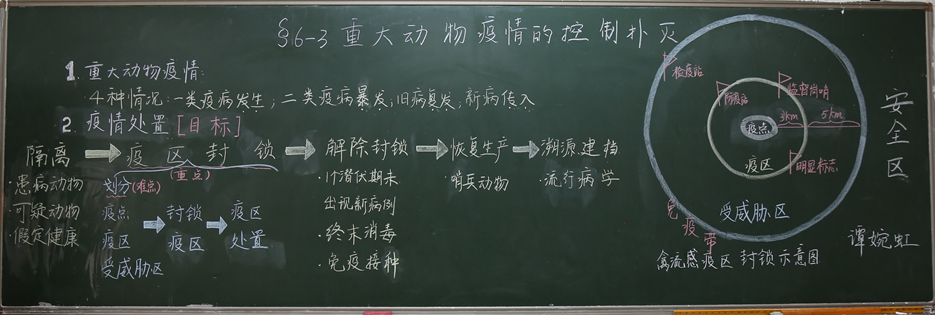 §6-3 重大动物疫情的控制扑灭
1. 重大动物疫情:
4种情况:一类疫病发生,二类疫病暴发,旧病复发,新病传入
2. 疫情处置[目标]
隔离 疫区封锁 解除封锁 恢复生产 溯源建档
(重点)
·患病动物
·可疑动物
·假定健康
划分(难点)
疫点
疫区
受威胁区
封锁
疫区
疫区
处置
·1个潜伏期未
出现新病例
·终末消毒
·免疫接种
·哨兵动物
·流行病学
检疫站
防疫站
监督岗哨
3km 5km
疫点
疫区
明显标志
受威胁区
免疫带
安全区
禽流感疫区封锁示意图
谭婉虹